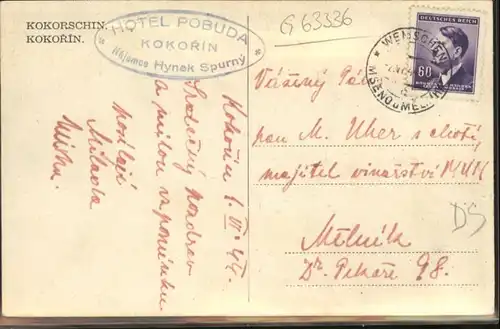 KOKORSCHIN.
KOKOŘÍN.
HOTEL POBUDA
KOKOŘÍN
Nájemce Hynek Spurný
G 63336
DEUTSCHES REICH
60
WEMSCHEN
MŠENO u MĚL
Kokořín 6. VI. 44.
Srdečný pozdrav
a milou vzpomínku
posílají
Milada
Vážený Pán
pan M. Uher s chotí
majitel vinařství
Mělník
Dr. Pekaře 98.
DS